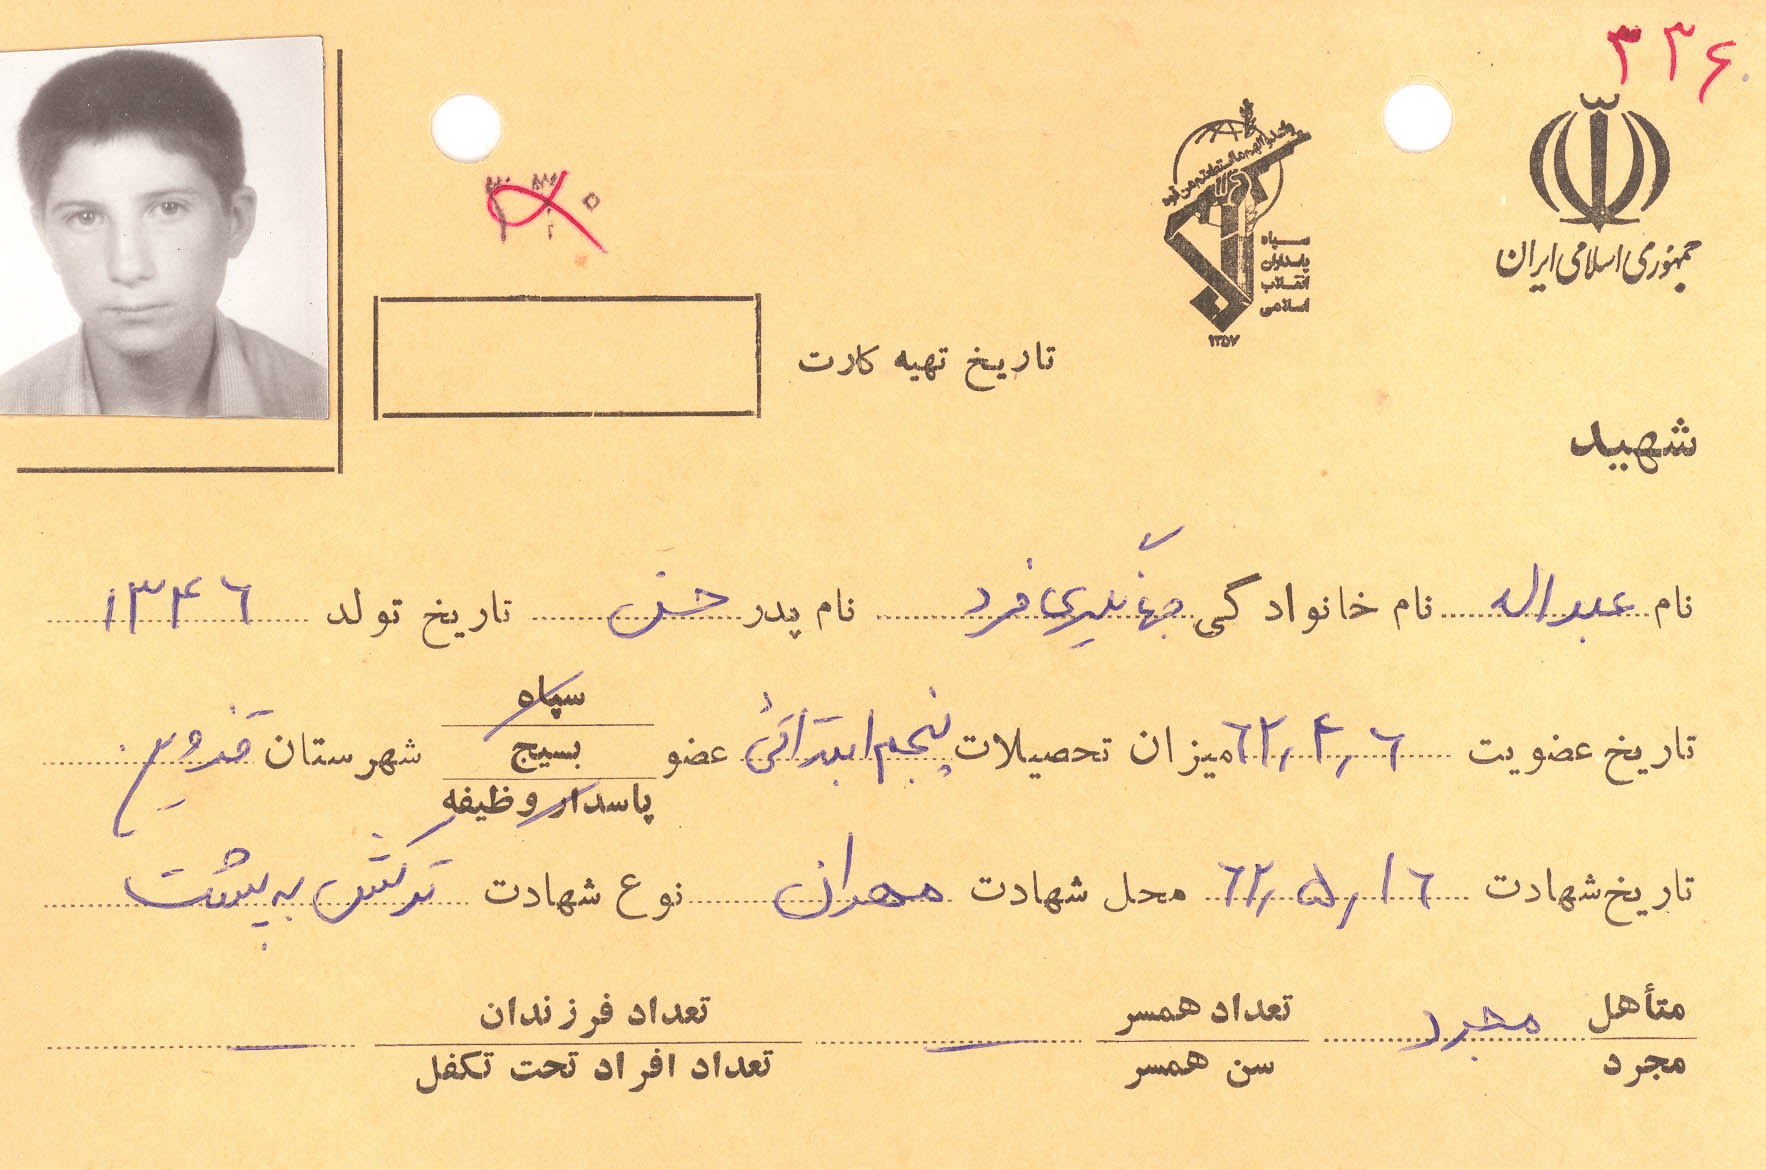 ۳۳۶
جمهوری اسلامی ایران
سپاه
پاسداران
انقلاب
اسلامی
۱۳۵۷
تاریخ تهیه کارت
شهید
نام عبداله نام خانوادگی جهانگیری فرد نام پدر حسن تاریخ تولد ۱۳۴۶
تاریخ عضویت ۶۲,۴,۶ میزان تحصیلات پنجم ابتدائی عضو سپاه بسیج پاسدار وظیفه شهرستان
تاریخ شهادت ۶۲,۵,۱۶ محل شهادت مهران نوع شهادت ترکش به پشت
متأهل مجرد مجرد تعداد همسر سن همسر — تعداد فرزندان تعداد افراد تحت تکفل —